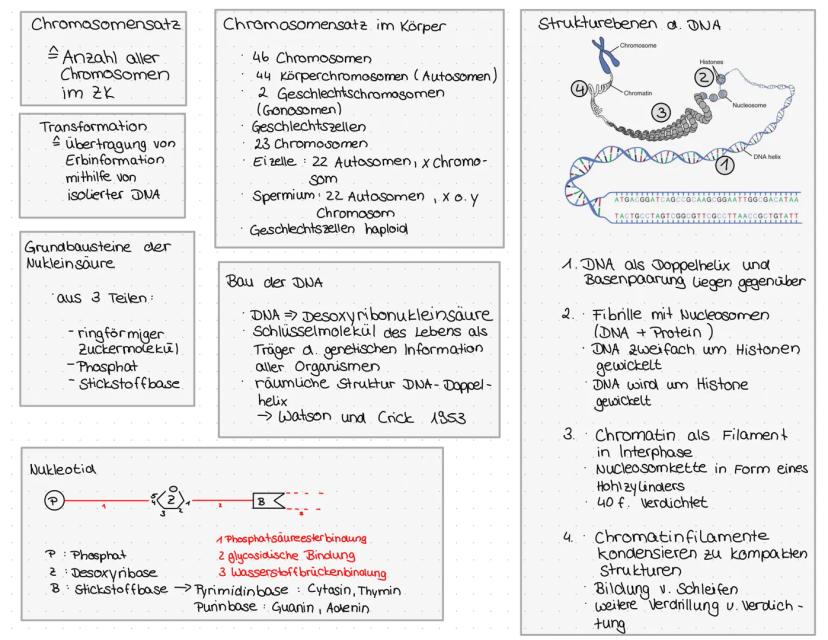 Chromosomensatz
≙ Anzahl aller
Chromosomen
im ZK
Transformation
≙ Übertragung von
Erbinformation
mithilfe von
isolierter DNA
Grundbausteine der
Nukleinsäure
· aus 3 Teilen:
- ringförmiger
Zuckermolekül
- Phosphat
- Stickstoffbase
Chromosomensatz im Körper
· 46 Chromosomen
· 44 Körperchromosomen (Autosomen)
· 2 Geschlechtschromosomen
(Gonosomen)
· Geschlechtszellen
· 23 Chromosomen
· Eizelle: 22 Autosomen, x Chromo-
som
· Spermium: 22 Autosomen, x o. y
Chromosom
· Geschlechtszellen haploid
Bau der DNA
· DNA ⇒ Desoxyribonukleinsäure
· Schlüsselmolekül des Lebens als
Träger d. genetischen Information
aller Organismen
· räumliche Struktur DNA-Doppel-
helix
→ Watson und Crick 1953
Nukleotid
P
1
5
4
3
2
1
O
Z
2
B
3
1 Phosphatsäureesterbindung
2 glycosidische Bindung
3 Wasserstoffbrückenbindung
P : Phosphat
Z : Desoxyribase
B : Stickstoffbase → Pyrimidinbase : Cytasin, Thymin
Purinbase : Guanin, Adenin
Strukturebenen d. DNA
Chromosome
Histones
2
4
Chromatin
Nucleosome
3
DNA helix
1
ATGACGGATCAGCCGCAAGCGGAATTGGCGACATAA
TACTGCCTAGTCGGCGTTCGCCTTAACCGCTGTATT
1. DNA als Doppelhelix und
Basenpaarung liegen gegenüber
2. · Fibrille mit Nucleosomen
(DNA + Protein)
· DNA zweifach um Histonen
gewickelt
· DNA wird um Histone
gewickelt
3. · Chromatin als Filament
in Interphase
· Nucleosomkette in Form eines
Hohlzylinders
· 40 f. verdichtet
4. · Chromatinfilamente
kondensieren zu kompakten
Strukturen
· Bildung v. Schleifen
· weitere Verdrillung u. Verdich-
tung